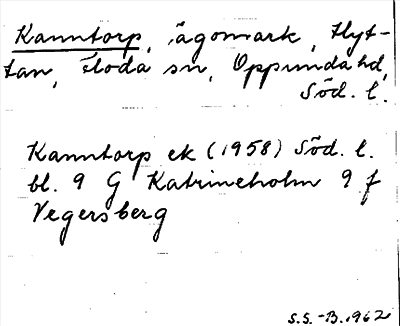 Kanntorp, ägomark, Hyt-
tan, Floda sn, Oppunda hd,
Söd. l.
Kanntorp ek (1958) Söd. l.
bl. 9 G Katrineholm 9 f
Vegersberg
S.S.-B. 1962